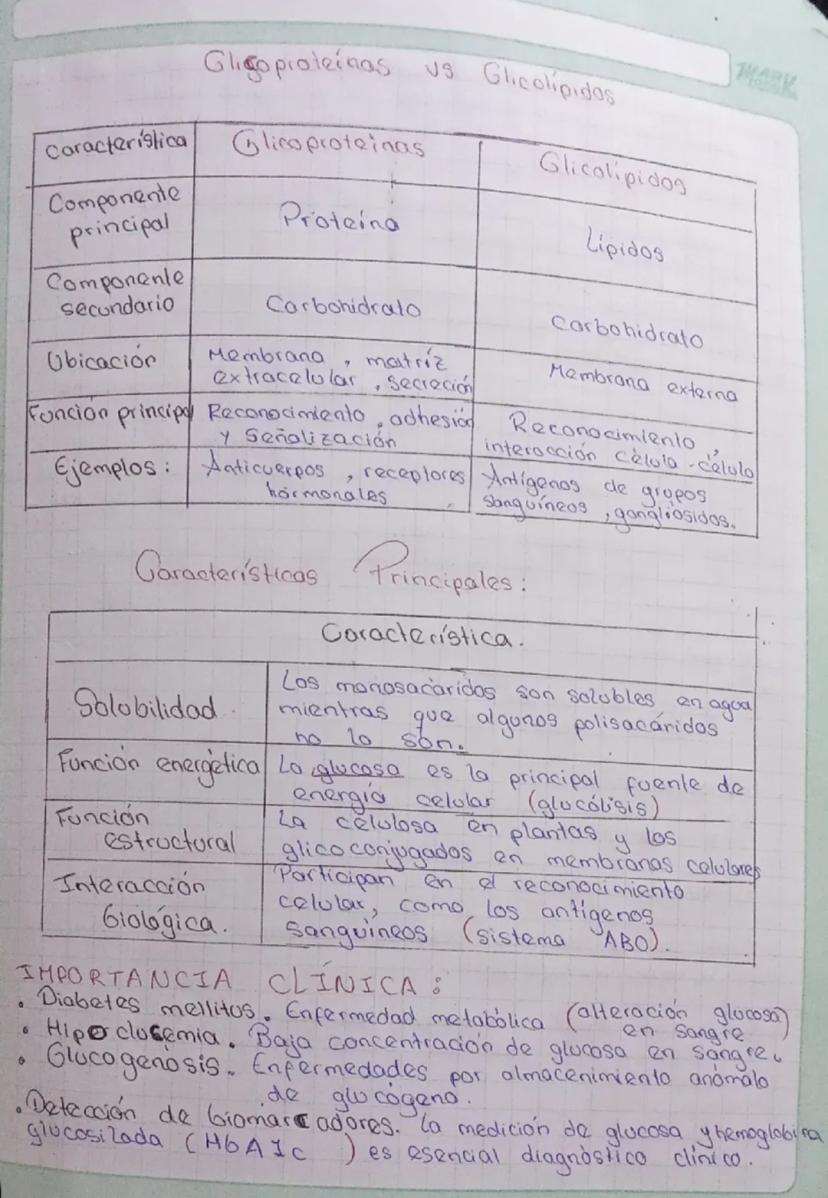 MARK
Glicoproteínas vs Glicolípidos
Característica Glicoproteinas Glicolipidos
Componente principal Proteína Lípidos
Componente secundario Carbohidrato Carbohidrato
Ubicación Membrana, matríz extracelular, secreción Membrana externa
Función principal Reconocimiento, adhesión y señalización Reconocimiento, interacción célula-célula
Ejemplos: Anticuerpos, receptores hormonales Antígenos de grupos sanguíneos, gangliósidos.
Características Principales:
Característica.
Solubilidad. Los monosacáridos son solubles en agua
mientras que algunos polisacáridos
no lo son.
Función energética La glucosa es la principal fuente de
energía celular (glucólisis)
Función estructural La celulosa en plantas y los
glicoconjugados en membranas celulares
Interacción biológica. Participan en el reconocimiento
celular, como los antígenos
sanguineos (sistema ABO).
IMPORTANCIA CLÍNICA:
• Diabetes mellitus. Enfermedad metabólica (alteración glucosa)
en sangre
• Hipoclucemia. Baja concentración de glucosa en sangre.
• Glucogenosis. Enfermedades por almacenimiento anómalo
de glucógeno.
• Detección de biomarcadores. La medición de glucosa y hemoglobina
glucosilada (HbA1c ) es esencial diagnóstico clínico.